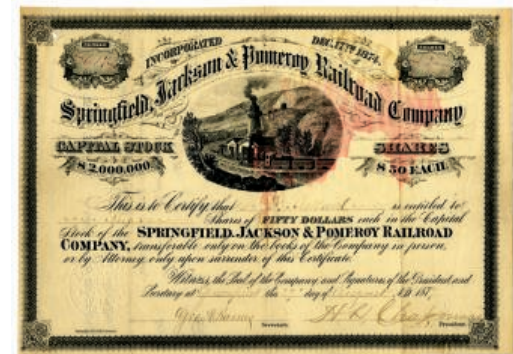 INCORPORATED DEC. 17TH 1874.
Springfield, Jackson & Pomeroy Railroad Company
CAPITAL STOCK
$2,000,000.
SHARES
$50 EACH.
This is to Certify that is entitled to
Shares of FIFTY DOLLARS each in the Capital
Stock of the SPRINGFIELD, JACKSON & POMEROY RAILROAD
COMPANY, transferable only on the books of the Company in person,
or by Attorney only upon surrender of this Certificate.
Witness, the Seal of the Company and Signatures of the President and
Secretary at the day of August A.D. 187
Secretary. President.